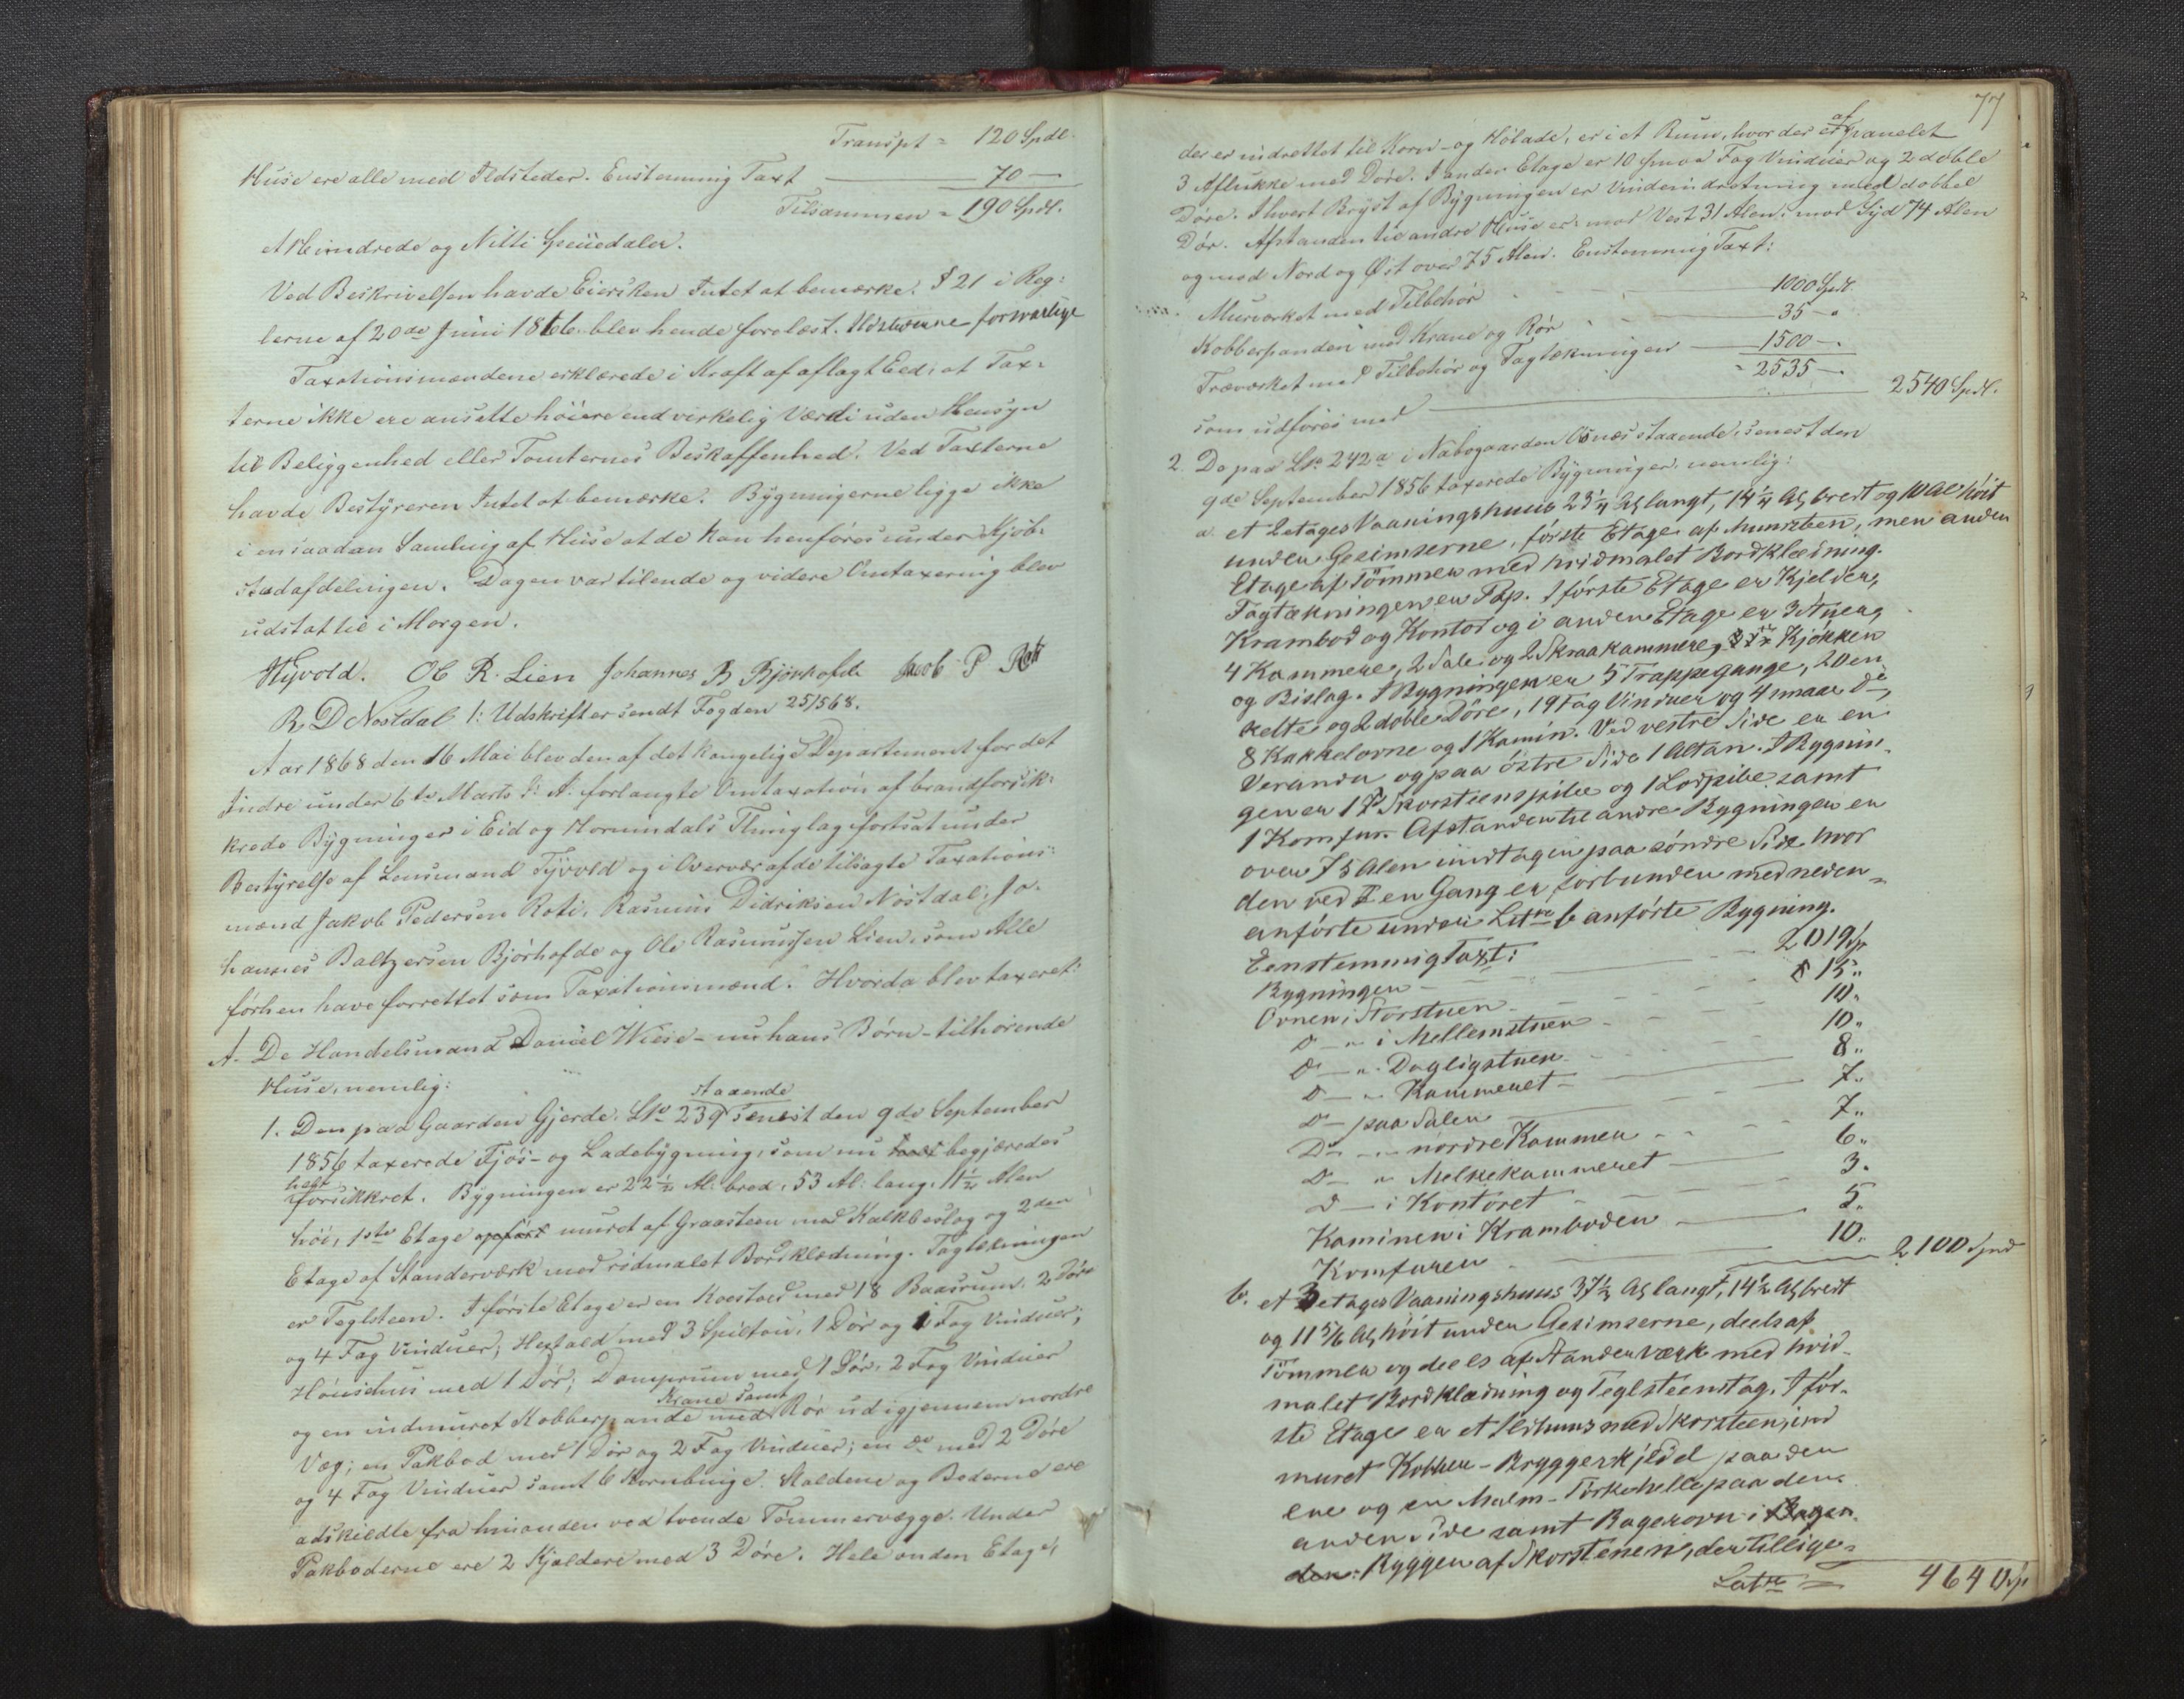 Transpt = 120 Spdl.
Huse ere alle med Ildsteder. Enstemmig Taxt — 70 —
Tilsammen = 190 Spdl.
et Hundrede og Nitti Speciedaler.
Ved Beskrivelsen havde Eiersken Intet at bemærke. § 21 i Reg-
lerne af 20de Juni 1866 blev hende forelæst. Ildstederne forsvarlige
Taxationsmændene erklærede i Kraft af aflagt Eed, at Tax-
terne ikke ere ansatte höiere end virkelig Værdi uden Hensyn
til Beliggenhed eller Tomternes Beskaffenhed. Ved Taxterne
havde Bestyreren Intet at bemærke. Bygningerne ligge ikke
i en saadan Samling af Huse at de kan henföres under Kjöb-
stadafdelingen. Dagen var tilende og videre Omtaxering blev
udsat til i Morgen.
Tyvold. Ole R. Lien Johannes B Björhofde Jacob P Roti
R. D Nostdal /: Udskrift er sendt Fogden 25/5 68.
Aar 1868 den 16 Mai blev den af det kongelige Departement for det
Indre under 6te Marts s: A: forlangte Omtaxation af brandforsik-
krede Bygninger i Eid og Hornindals Thinglag fortsat under
Bestyrelse af Lensmand Tyvold og i Overvær af de tilsagte Taxations-
mænd Jakob Pedersen Roti, Rasmus Didriksen Nöstdal, Jo-
hannes Baltzersen Björhofde og Ole Rasmussen Lien, som Alle
förhen have forrettet som Taxationsmænd. Hvorda blev taxeret:
A. De Handelsmand Daniel Wiese - nu hans Börn - tilhörende
Huse, nemlig:
1. Den paa Gaarden Gjerde. LNo 239 staaende senest den 9de September
1856 taxerede Fjös- og Ladebygning, som nu begjæredes
helt forsikkret. Bygningen er 22½ Al: bred, 53 Al: lang, 11½ Alen
höi, 1ste Etage opfört muret af Graasteen med Kalkbeslag og 2den
Etage af Standerværk med rödmalet Bordklædning. Tagtækningen
er Teglsteen. I förste Etage er en Kostald med 18 Baasrum, 2 Döre
og 4 Fag Vinduer; Hestald med 3 Spiltou, 1 Dör og 1 Fag Vinduer;
Hönsehus med 1 Dör; Damprum med 1 Dör, 2 Fag Vinduer
og en indmuret Kobberpande med Krane samt Rör ud igjennem nordre
Væg; en Pakbod med 1 Dör og 2 Fag Vinduer; en do med 2 Döre
og 4 Fag Vinduer samt 6 Kornbinge. Staldene og Boderne ere
adskildte fra hinanden ved tvende Tömmervægge. Under
Pakboderne ere 2 Kjeldere med 3 Döre. Hele anden Etage,
77
der er indrettet til Korn- og Hölade, er i et Rum, hvor der er af panelet
3 Aflukke med Döre. I anden Etage er 10 smaa Fag Vinduer og 2 doble
Döre. I hvert Bryst af Bygningen er Vindeindretning med dobbel
Dör. Afstanden til andre Huse er: mod Vest 31 Alen, mod Syd 74 Alen
og mod Nord og Öst over 75 Alen. Enstemmig Taxt:
Murværket med Tilbehör — 1000 Spdl.
Kobberpanden med Krane og Rör — 35 —
Træværket med Tilbehör og Tagtækningen — 1500 —
= 2535 —
som udföres med — 2540 Spdl.
2. De paa LNo 242a i Nabogaarden Osnæs staaende, senest den
9de September 1856 taxerede Bygninger, nemlig:
a. et 2etages Vaaningshuus 23¼ Al langt, 14¼ Al bredt og 10 Al höit
under Gesimserne, förste Etage af Muursten, men anden
Etage af Tömmer med hvidmalet Bordklædning.
Tagtækningen er Pap. I förste Etage er Kjelder,
Krambod og Kontor og i anden Etage er 3 Stuer,
4 Kammere, 2 Sale og 2 Skraakammere, Kjökken
og Bislag. I Bygningen er 5 Trappegange, 20 en-
kelte og 2 doble Döre, 19 Fag Vinduer og 4 smaa do,
8 Kakkelovne og 1 Kamin. Ved vestre Side er en
Veranda og paa östre Side 1 Altan. I Bygnin-
gen er 1 Skorsteenspibe og 1 Lodpibe samt
1 Komfur. Afstanden til andre Bygninger er
over 75 Alen undtagen paa söndre Side hvor
den ved en Gang er forbunden med neden-
anförte under Litra b anförte Bygning.
Eenstemmig Taxt:
Bygningen — 2019 Sp
Ovnen i Storstuen — 15 "
Do — " i Mellemstuen — 10 "
Do — " Dagligstuen — 10 "
Do — " Kammeret — 8 "
Do — paa Salen — 7 "
Do — " nordre Kammer — 7 "
Do — " Melkekammeret — 6 "
Do — i Kontoret — 3 "
Kaminen i Kramboden — 5 "
Komfuren — 10 " — 2100 Spd
b. et 3etages Vaaningshuus 37½ Al langt, 14½ Al bredt
og 11 5/6 Al höit under Gesimserne, deels af
Tömmer og deels af Standerværk med hvid-
malet Bordklædning og Teglsteenstag. I för-
ste Etage er et Ildhuus med Skorsteen, ind-
muret Kobber-Bryggerkjedel paa den
ene og en Malm-Törkehelle paa den
anden Side samt Bagerovn i
Ryggen af Skorstenen, der tillige-
Latus = 4640 Sp